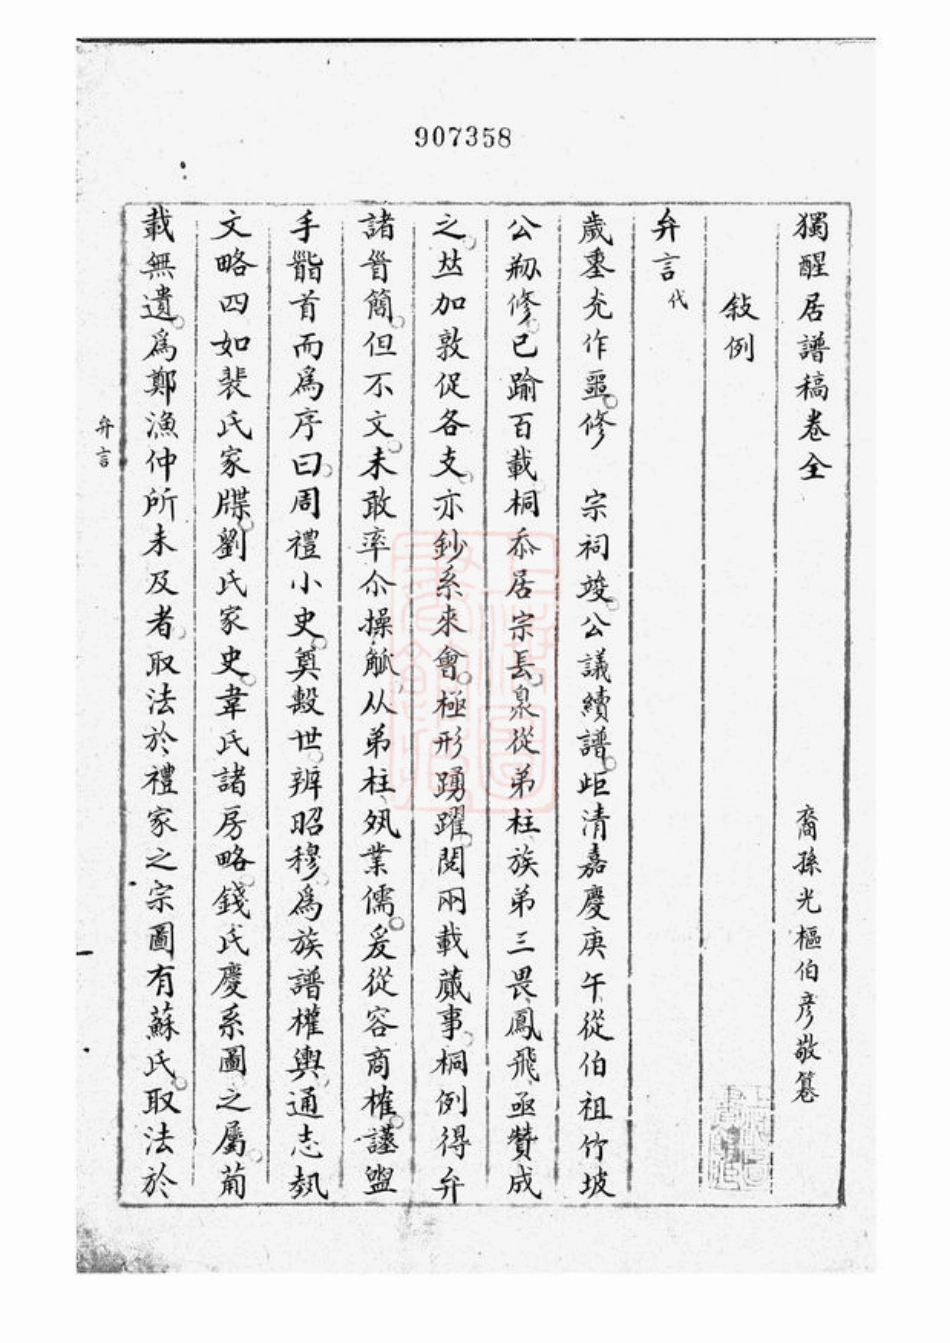 907358
獨醒居譜稿卷全
裔孫光樞伯彥敬篹
敍例
弁言代
歲重光作噩修　宗祠竣公議續譜歫清嘉慶庚午從伯祖竹坡
公刱修已踰百載桐忝居宗長泉從弟柱族弟三畏鳳飛亟贊成
之玆加敦促各支亦鈔系來會極形踴躍閱兩載蕆事桐例得弁
諸晉簡但不文未敢率尒操觚从弟柱夙業儒爰從容商榷謹盥
手䭫首而爲序曰周禮小史奠繫世辨昭穆爲族譜權輿通志埶
文略四如裴氏家牒劉氏家史韋氏諸房略錢氏慶系圖之屬葡
載無遺爲鄭漁仲所未及者取法於禮家之宗圖有蘇氏取法於
弁言